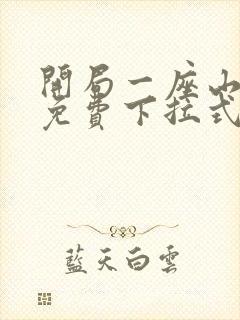 開局一座山
免費下拉式
藍天白雲